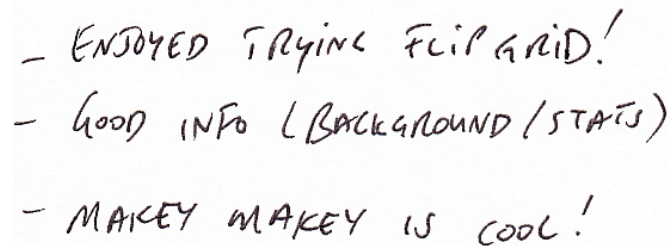 - ENJOYED TRYING FLIPGRID!
- GOOD INFO (BACKGROUND/STATS)
- MAKEY MAKEY IS COOL!